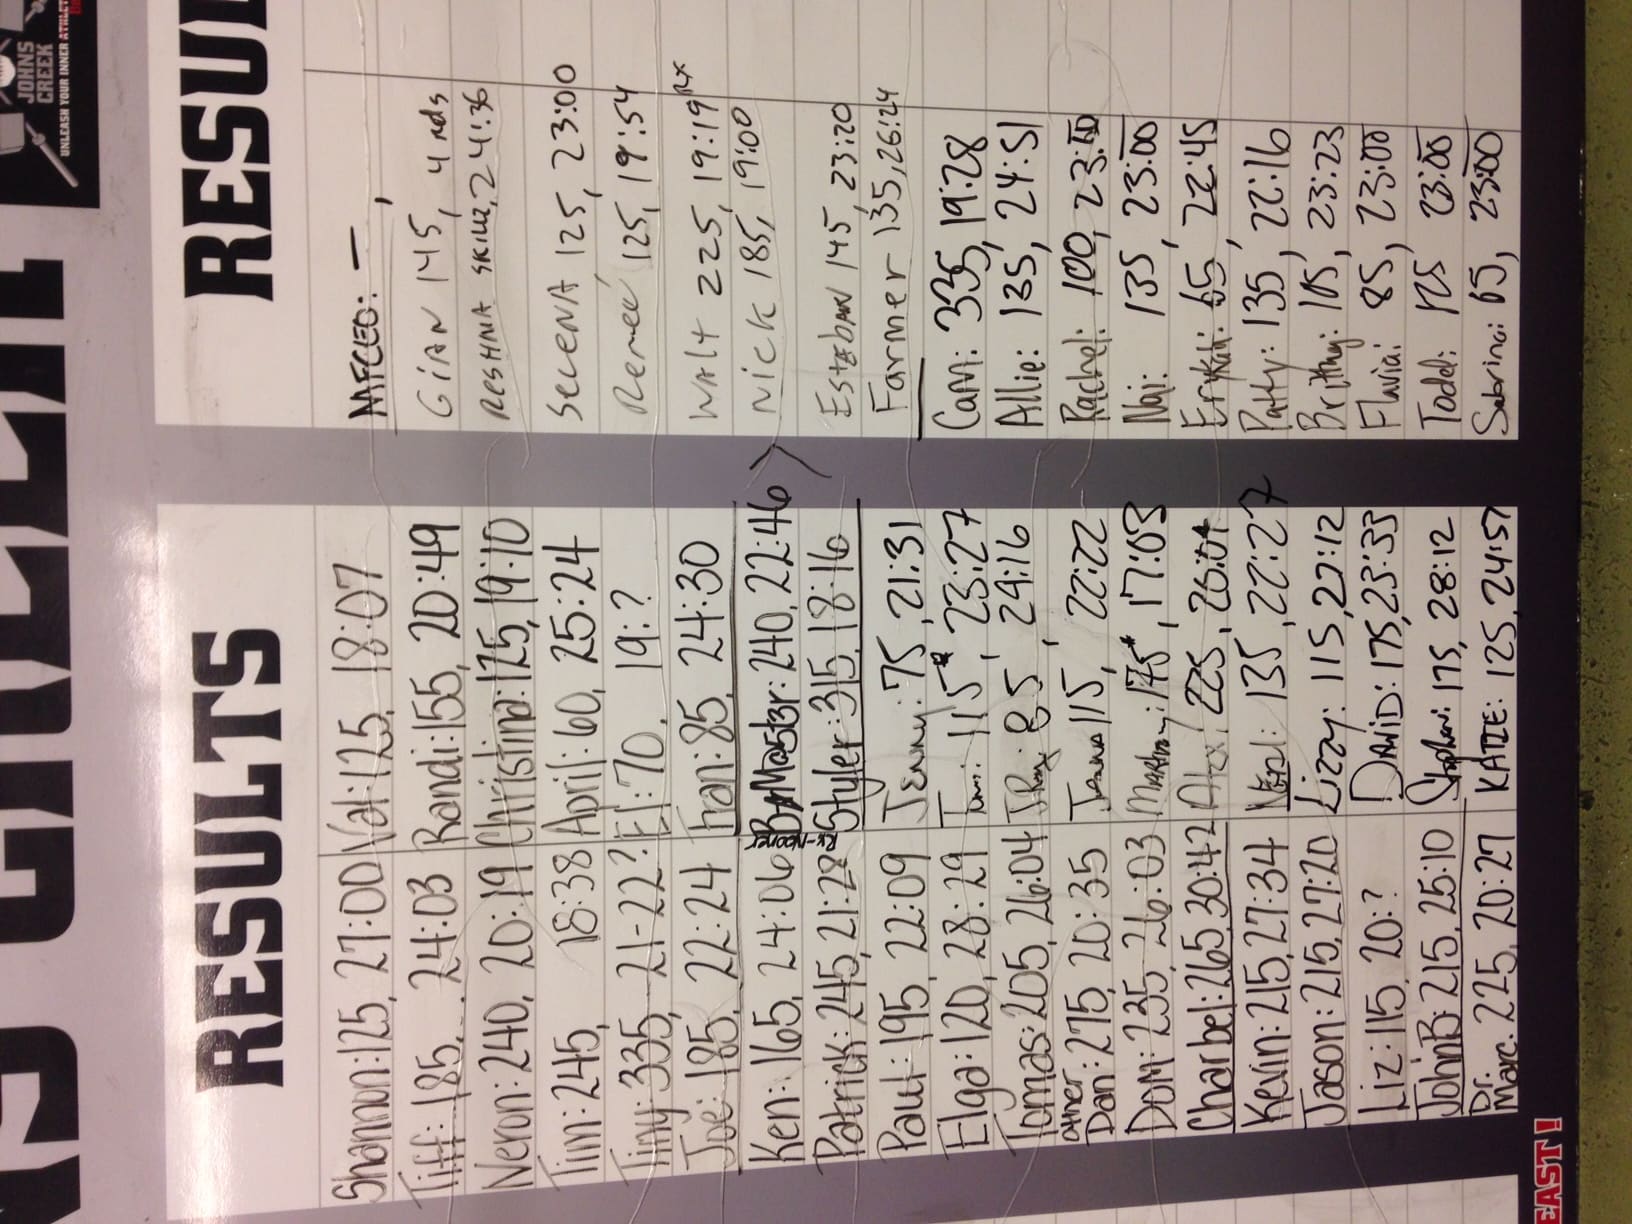 JOHNS
CREEK
UNLEASH YOUR INNER
RESULTS
Shannon: 125, 27:00
Tiff: 185, 24:03
Neron: 240, 20:19
Tim: 245, 18:38
Tiny: 335, 21-22?
Joe: 185, 22:24
Ken: 165, 24:06
Patrick: 245, 21:28
Paul: 195, 22:09
Elga: 120, 28:29
Tomas: 205, 26:04
other
Dan: 275, 20:35
Dom: 235, 26:03
Charbel: 265, 30:42
Kevin: 215, 27:34
Jason: 215, 27:20
Liz: 115, 20:?
JohnB: 215, 25:10
Dr.
Marc: 225, 20:27
Val: 125, 18:07
Randi: 155, 20:49
Christina: 125, 19:10
April: 60, 25:24
El: 70, 19:?
Fran: 85, 24:30
240, 22:46
Rx-Nooner
Styler: 315, 18:16
Jenny: 75, 21:31
Tami: 115*, 23:27
85, 24:16
Jenna 115, 22:22
175*, 17:03
Alex: 225
135, 22:27
Lizzy: 115, 27:12
DAVID: 175, 23:33
Stephen: 175, 28:12
KATIE: 125, 24:57
RESUL
GiAN 145, 4 rds
RESHMA 24:36
SELCENA 125, 23:00
Reneé 125, 19:54
WALT 225, 19:19 Rx
NICK 185, 19:00
EstEbAN 145, 23:20
Farmer 135, 26:24
Cam: 335, 19:28
Allie: 135, 24:51
Rachel: 100
Naj: 135, 23:00
Erykah: 65, 22:45
Patty: 135, 22:16
Brithny: 105, 23:23
Fluvia: 85, 23:00
Todd: 125 23:00
Sabrina: 65, 23:00
EAST!